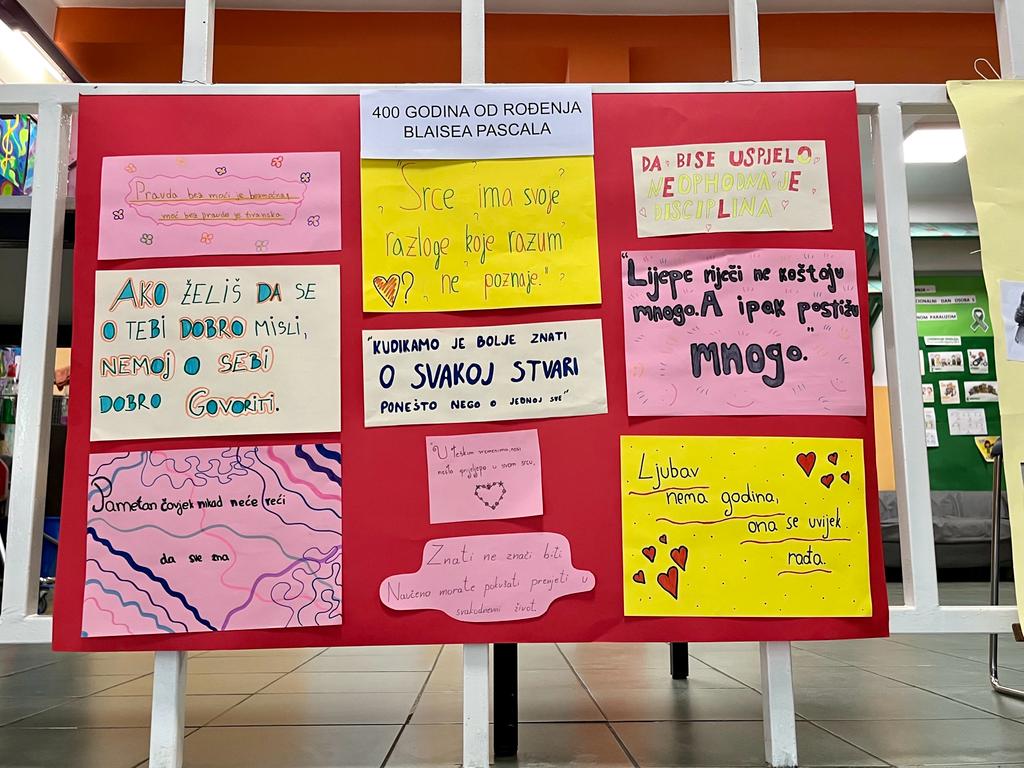 400 GODINA OD ROĐENJA
BLAISEA PASCALA
Pravda bez moći je bemoćna,
moć bez pravde je tiranska
"Srce ima svoje
razloge koje razum
ne poznaje."
?
DA BI SE USPJELO
NEOPHODNA JE
DISCIPLINA
AKO ŽELIŠ DA SE
O TEBI DOBRO MISLI,
NEMOJ O SEBI
DOBRO GOVORITI.
"KUDIKAMO JE BOLJE ZNATI
O SVAKOJ STVARI
PONEŠTO NEGO O JEDNOJ SVE"
"Lijepe riječi ne koštaju
mnogo. A ipak postižu
mnogo."
Pametan čovjek nikad neće reći
da sve zna
U teškim vremenima, nosi
nešto prijelepo u svom srcu,
Ljubav
nema godina,
ona se uvijek
rađa.
Znati ne znači biti
Naučeno morate pokušati prenijeti u
svakodnevni život.